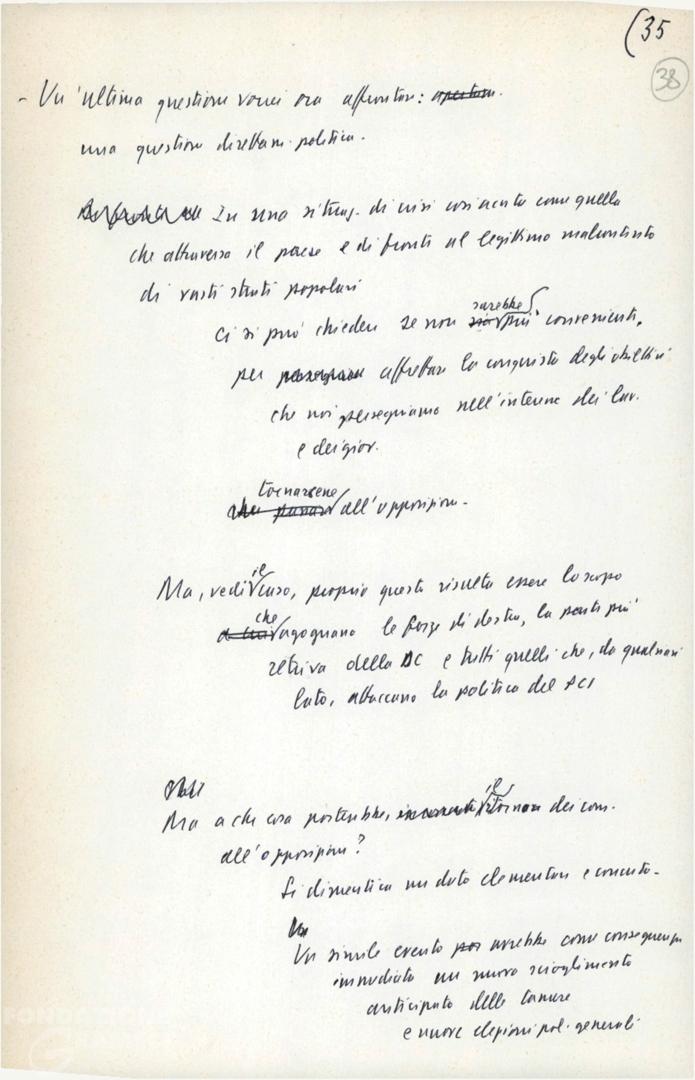 (35
38
- Un'ultima questione vorrei ora affrontare:
una questione direttam. politica.
In una situaz. di crisi così acuta come quella
che attraversa il paese e di fronte al legittimo malcontento
di vasti strati popolari
sarebbe
ci si può chiedere se non più conveniente,
per affrettare la conquista degli obiettivi
che noi perseguiamo nell'interesse dei lav.
e dei giov.
tornarsene
che passare all'opposizione.
il
Ma, vedi caso, proprio questo risulta essere lo scopo
che
a cui agognano le forze di destra, la parte più
retriva della DC e tutti quelli che, da qualsiasi
lato, attaccano la politica del PCI
il
Ma a che cosa porterebbe, ritornare dei com.
all'opposizione?
Si dimentica un dato elementare e concreto.
Un
Un simile evento avrebbe come conseguenza
immediata un nuovo scioglimento
anticipato delle camere
e nuove elezioni pol. generali